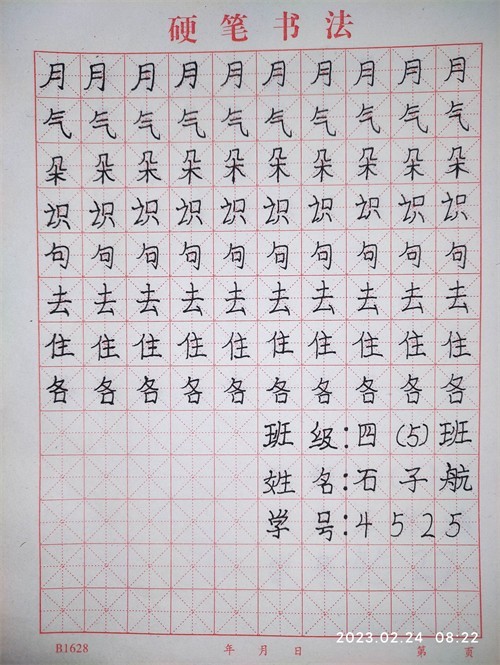 硬笔书法
月月月月月月月月月月
气气气气气气气气气气
朵朵朵朵朵朵朵朵朵朵
识识识识识识识识识识
句句句句句句句句句句
去去去去去去去去去去
住住住住住住住住住住
各各各各各各各各各各
班级:四(5)班
姓名:石子航
学号:4525
2023.02.24 08:22
B1628 年 月 日 第 页